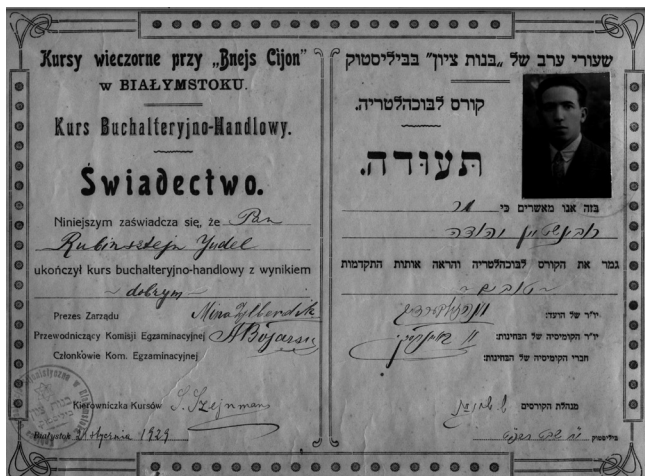 Kursy wieczorne przy „Bnejs Cijon"
w BIAŁYMSTOKU.
Kurs Buchalteryjno-Handlowy.
Świadectwo.
Niniejszym zaświadcza się, że Pan
Rubinsztejn Judel
ukończył kurs buchalteryjno-handlowy z wynikiem
~ dobrym ~
Prezes Zarządu
Przewodniczący Komisji Egzaminacyjnej
Członkowie Kom. Egzaminacyjnej
Kierowniczka Kursów S. Szejnman
Białystok 1929
שעורי ערב של „בנות ציון" בביליסטוק
קורס לבוכהלטריה.
תעודה.
בזה אנו מאשרים כי מר
רובינשטיין יהודה
גמר את הקורס לבוכהלטריה והראה אותות התקדמות
~ טובים ~
יו"ר של הועד:
יו"ר הקומיסיה של הבחינות:
חברי הקומיסיה של הבחינות:
מנהלת הקורסים
ביליסטוק